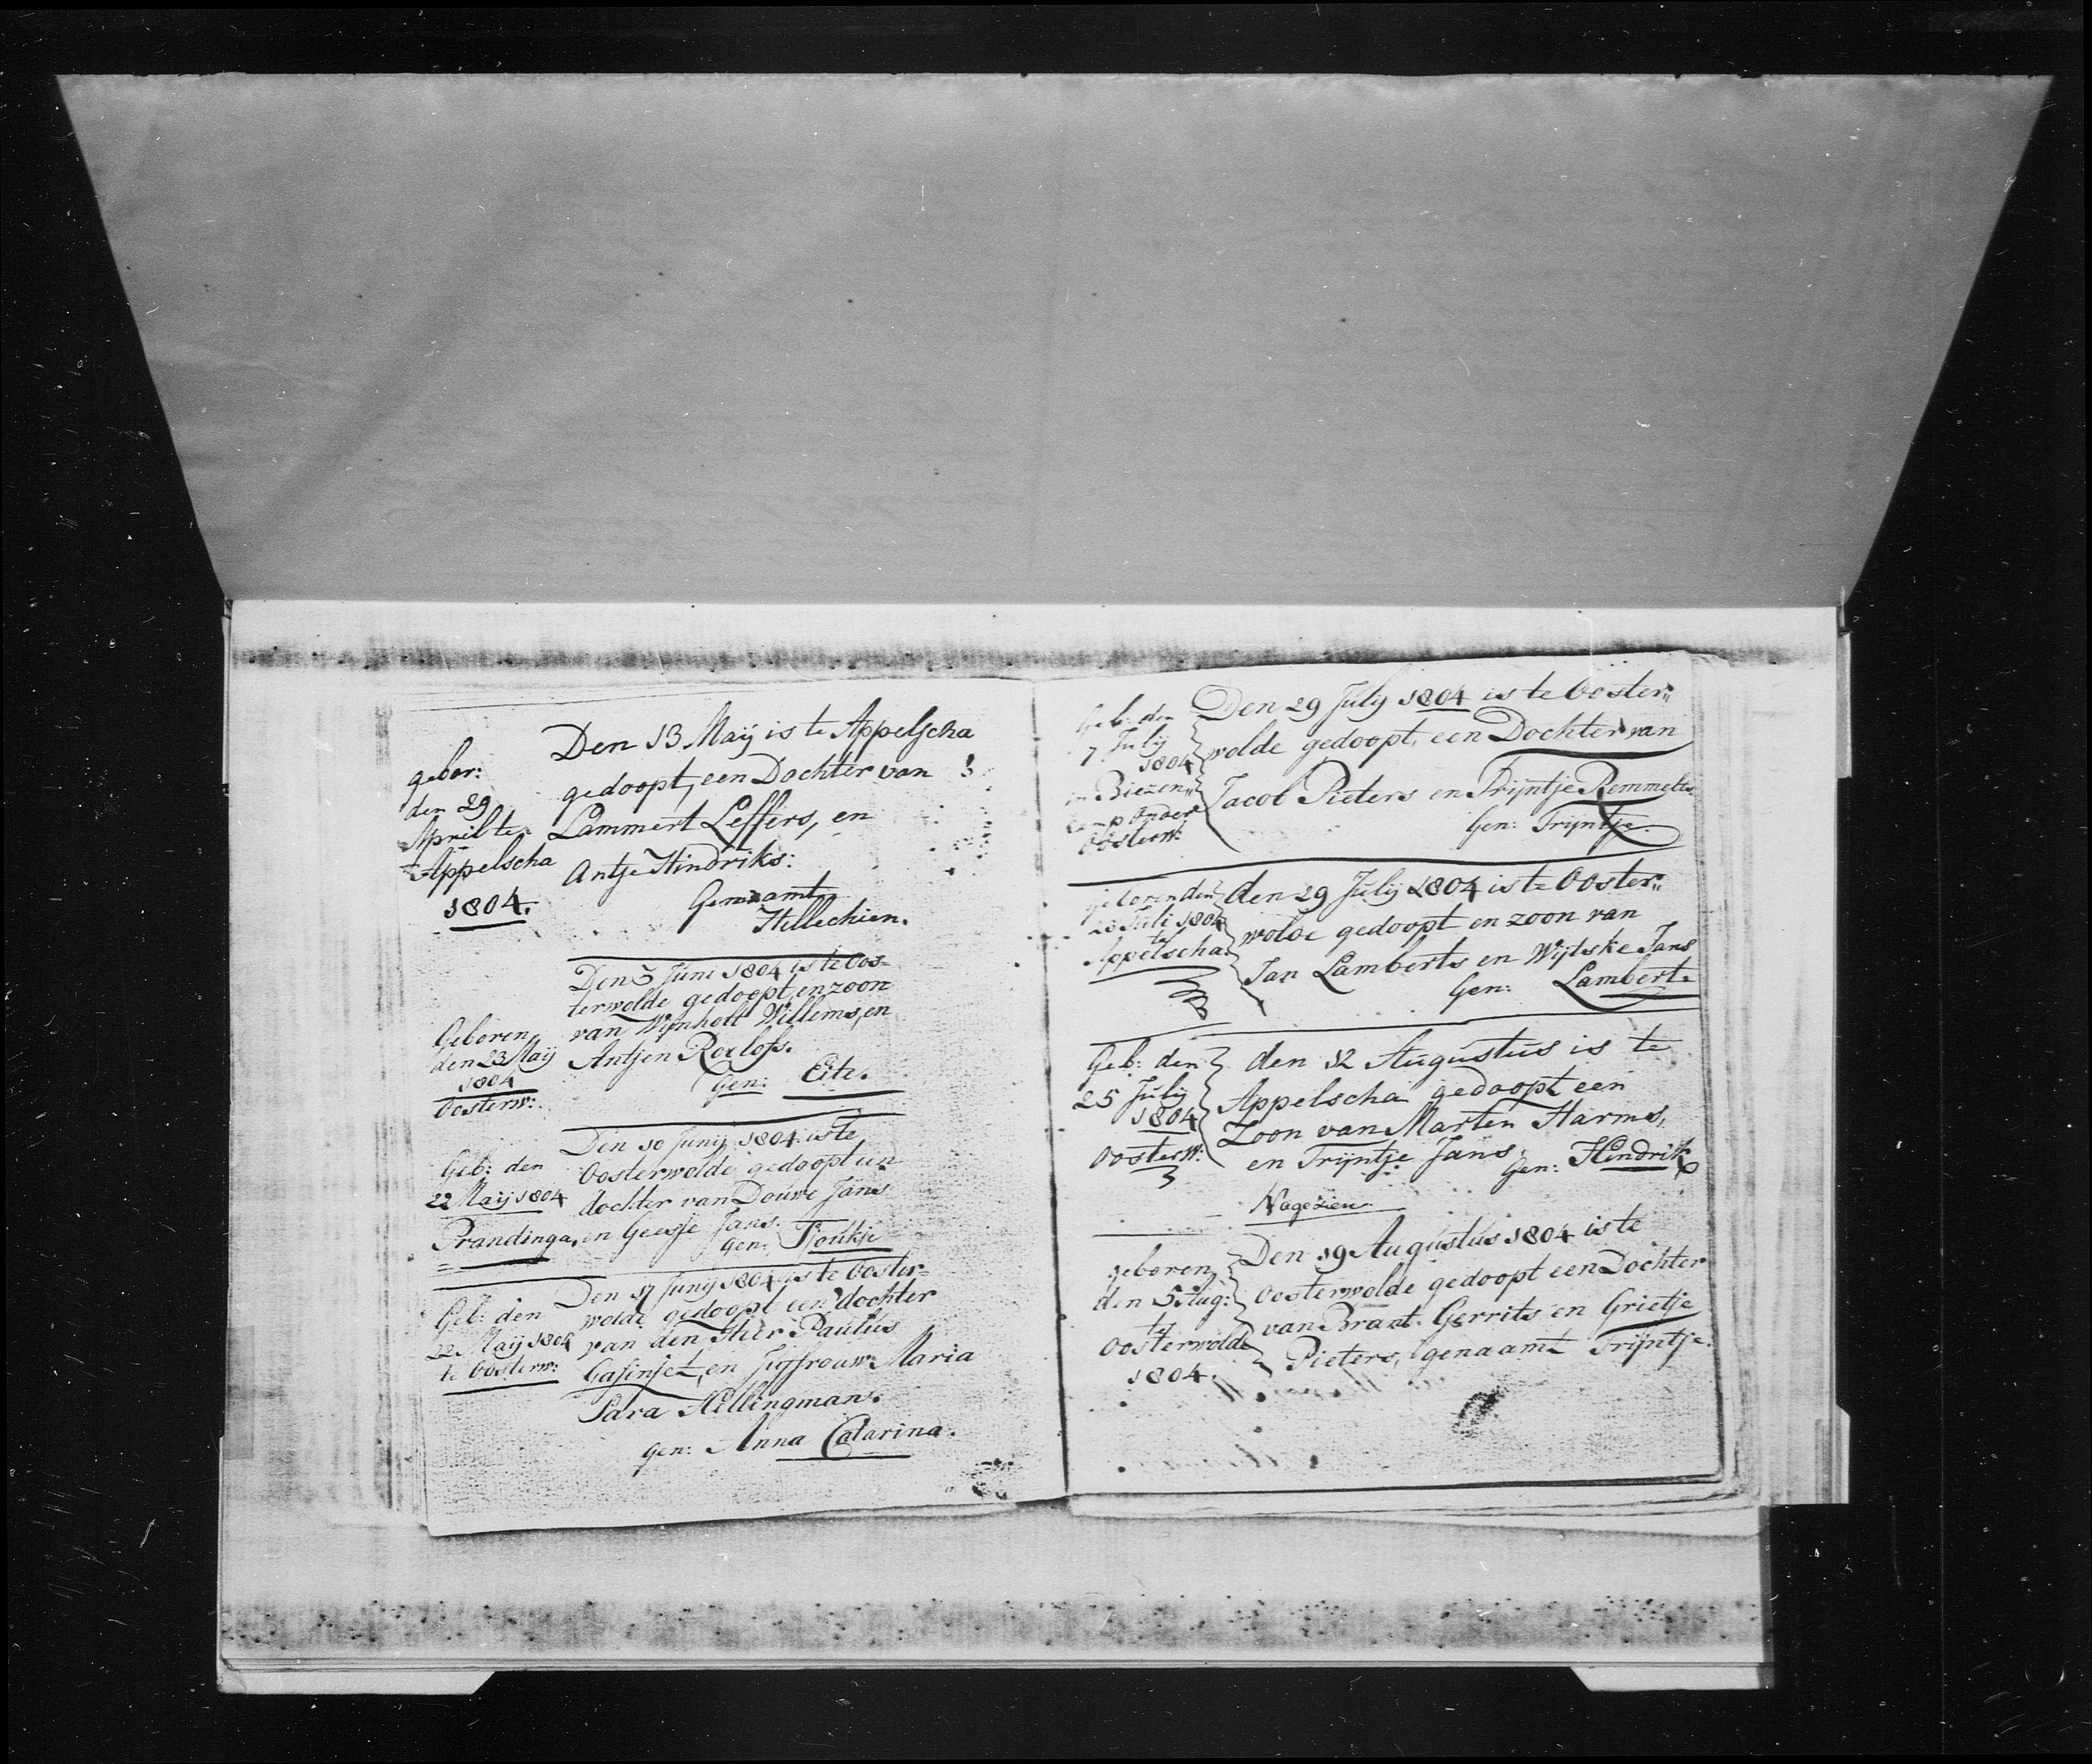 gebor:
den 29
April te
Appelscha
1804.
Den 13 Maij is te Appelscha
gedoopt, een Dochter van
Lammert Leffers, en
Antje Hindriks:
Genaamt
Hillechien.
Geboren
den 23 Maij
1804
Oosterw:
Den 3 Juni 1804 is te Oos-
terwolde gedoopt en zoon
van Wijnholt Willems, en
Antjen Roelofs.
Gen: Eite.
Geb: den
22 Maij 1804
Prandinga.
Den 10 Junij 1804 is te
Oosterwolde gedoopt en
dochter van Douwe Jans
en Geesje Jans.
Gen: Tjoukje
Geb: den
22 Maij 1804
te Oosterw:
Den 17 Junij 1804 is te Ooster-
wolde gedoopt een dochter
van den Heer Paulus
Gasinjet, en Juffrouw Maria
Sara Hillingman.
Gen: Anna Catarina.
Geb: den
7 Julij
1804
Biezen„
kamp onder
Oosterw:
Den 29 Julij 1804 is te Ooster„
wolde gedoopt, een Dochter van
Jacob Pieters en Trijntje Remmelts
Gen: Trijntje.
geboren den
Juli 1804
te
Appelscha.
den 29 Julij 1804 is te Ooster„
wolde gedoopt en zoon van
Jan Lamberts en Wijtske Jans
Gen: Lambert.
Geb: den
25 Julij
1804
Oosterw:
den 12 Augustus is te
Appelscha gedoopt een
Zoon van Marten Harms,
en Trijntje Jans.
Gen: Hendrik
Nagezien
geboren
den 5 Aug:
te
Oosterwolde
1804.
Den 19 Augustus 1804 is te
Oosterwolde gedoopt een Dochter
van Brant Gerrits en Grietje
Pieters, genaamt Trijntje.